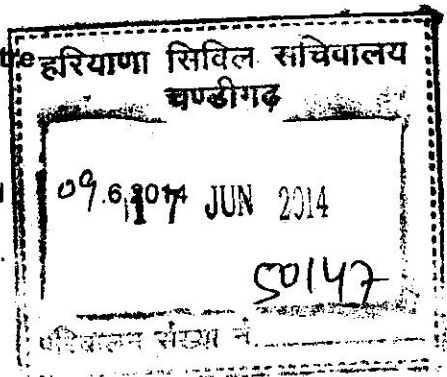 हरियाणा सिविल सचिवालय
चण्डीगढ़
09.6.2014
17 JUN 2014
50147
संख्या नं.